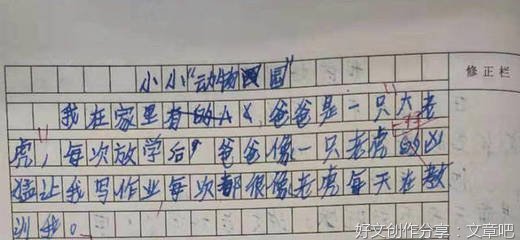 小小"动物园"
修正栏
我在家里有的人，爸爸是一只大老
虎，每次放学后，爸爸像一只老虎的凶
猛让我写作业每次都很像老虎每天在教
训我。
好文创作分享：文章吧